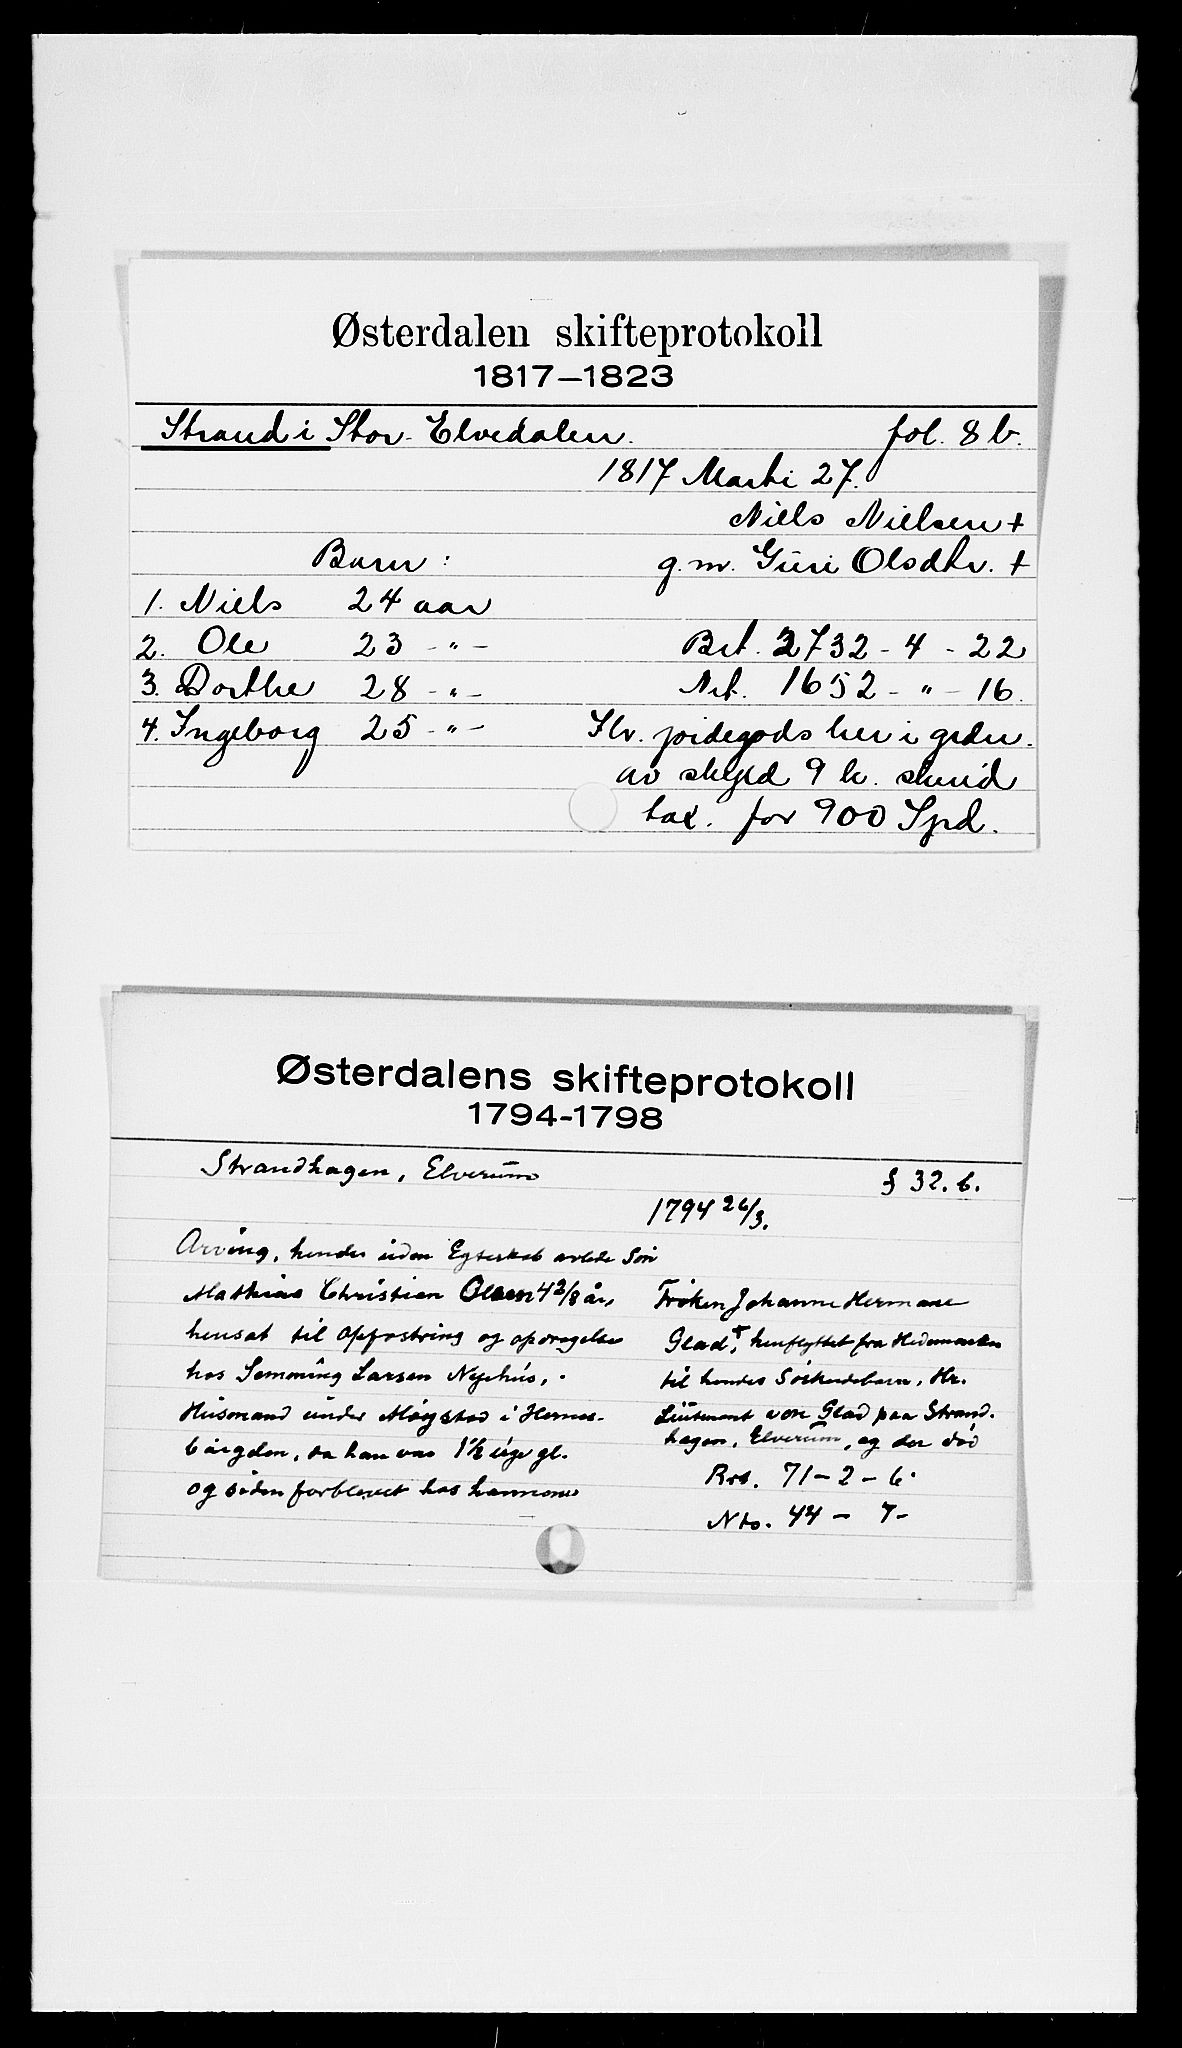 Østerdalen skifteprotokoll
1817–1823
Strand i Stor-Elvedalen. fol. 8 b.
1817 Marti 27.
Niels Nielsen +
Barn: g. m. Guri Olsdtr. +
1. Niels 24 aar
2. Ole 23 -"- Brt. 2732 - 4 - 22
3. Dorthe 28 -"- Net. 1652 - " - 16.
4. Ingeborg 25 -"- Hr. jordegods her i grden.
av skyld 9 h. skind
tax. for 900 Spd.
Østerdalens skifteprotokoll
1794-1798
Strandhagen, Elverum § 32. b.
1794 26/3.
Arving, hendes uden Egteskab avlede Søn
Mathias Christian Olsen 4 3/8 år, Frøken Johanne Hermane
hensat til Oppfostring og opdragelse Glad +, henflyttet fra Hedemarken
hos Semming Larsen Nyehus, - til hendes Søskendebarn, Hr.
Husmand under Møystad i Hernes- Lieutenant von Glad paa Strand-
bøigden, da han var 1½ uge gl. hagen, Elverum, og der død
og siden forblevet hos hannem Brt. 71 - 2 - 6.
Nto. 44 - 7 -